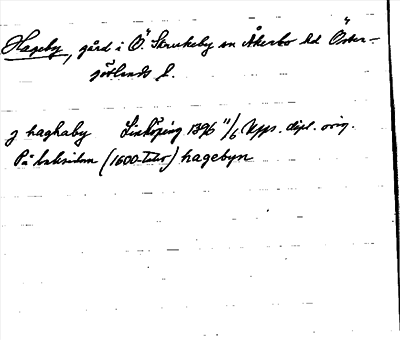 Hageby, gård i Ö Skrukeby sn Åkerbo hd Öster-
götlands l.
J haghaby Linköping 1396 11/6 Upps. dipl. orig.
På baksidan (1600-talet) hagebyn